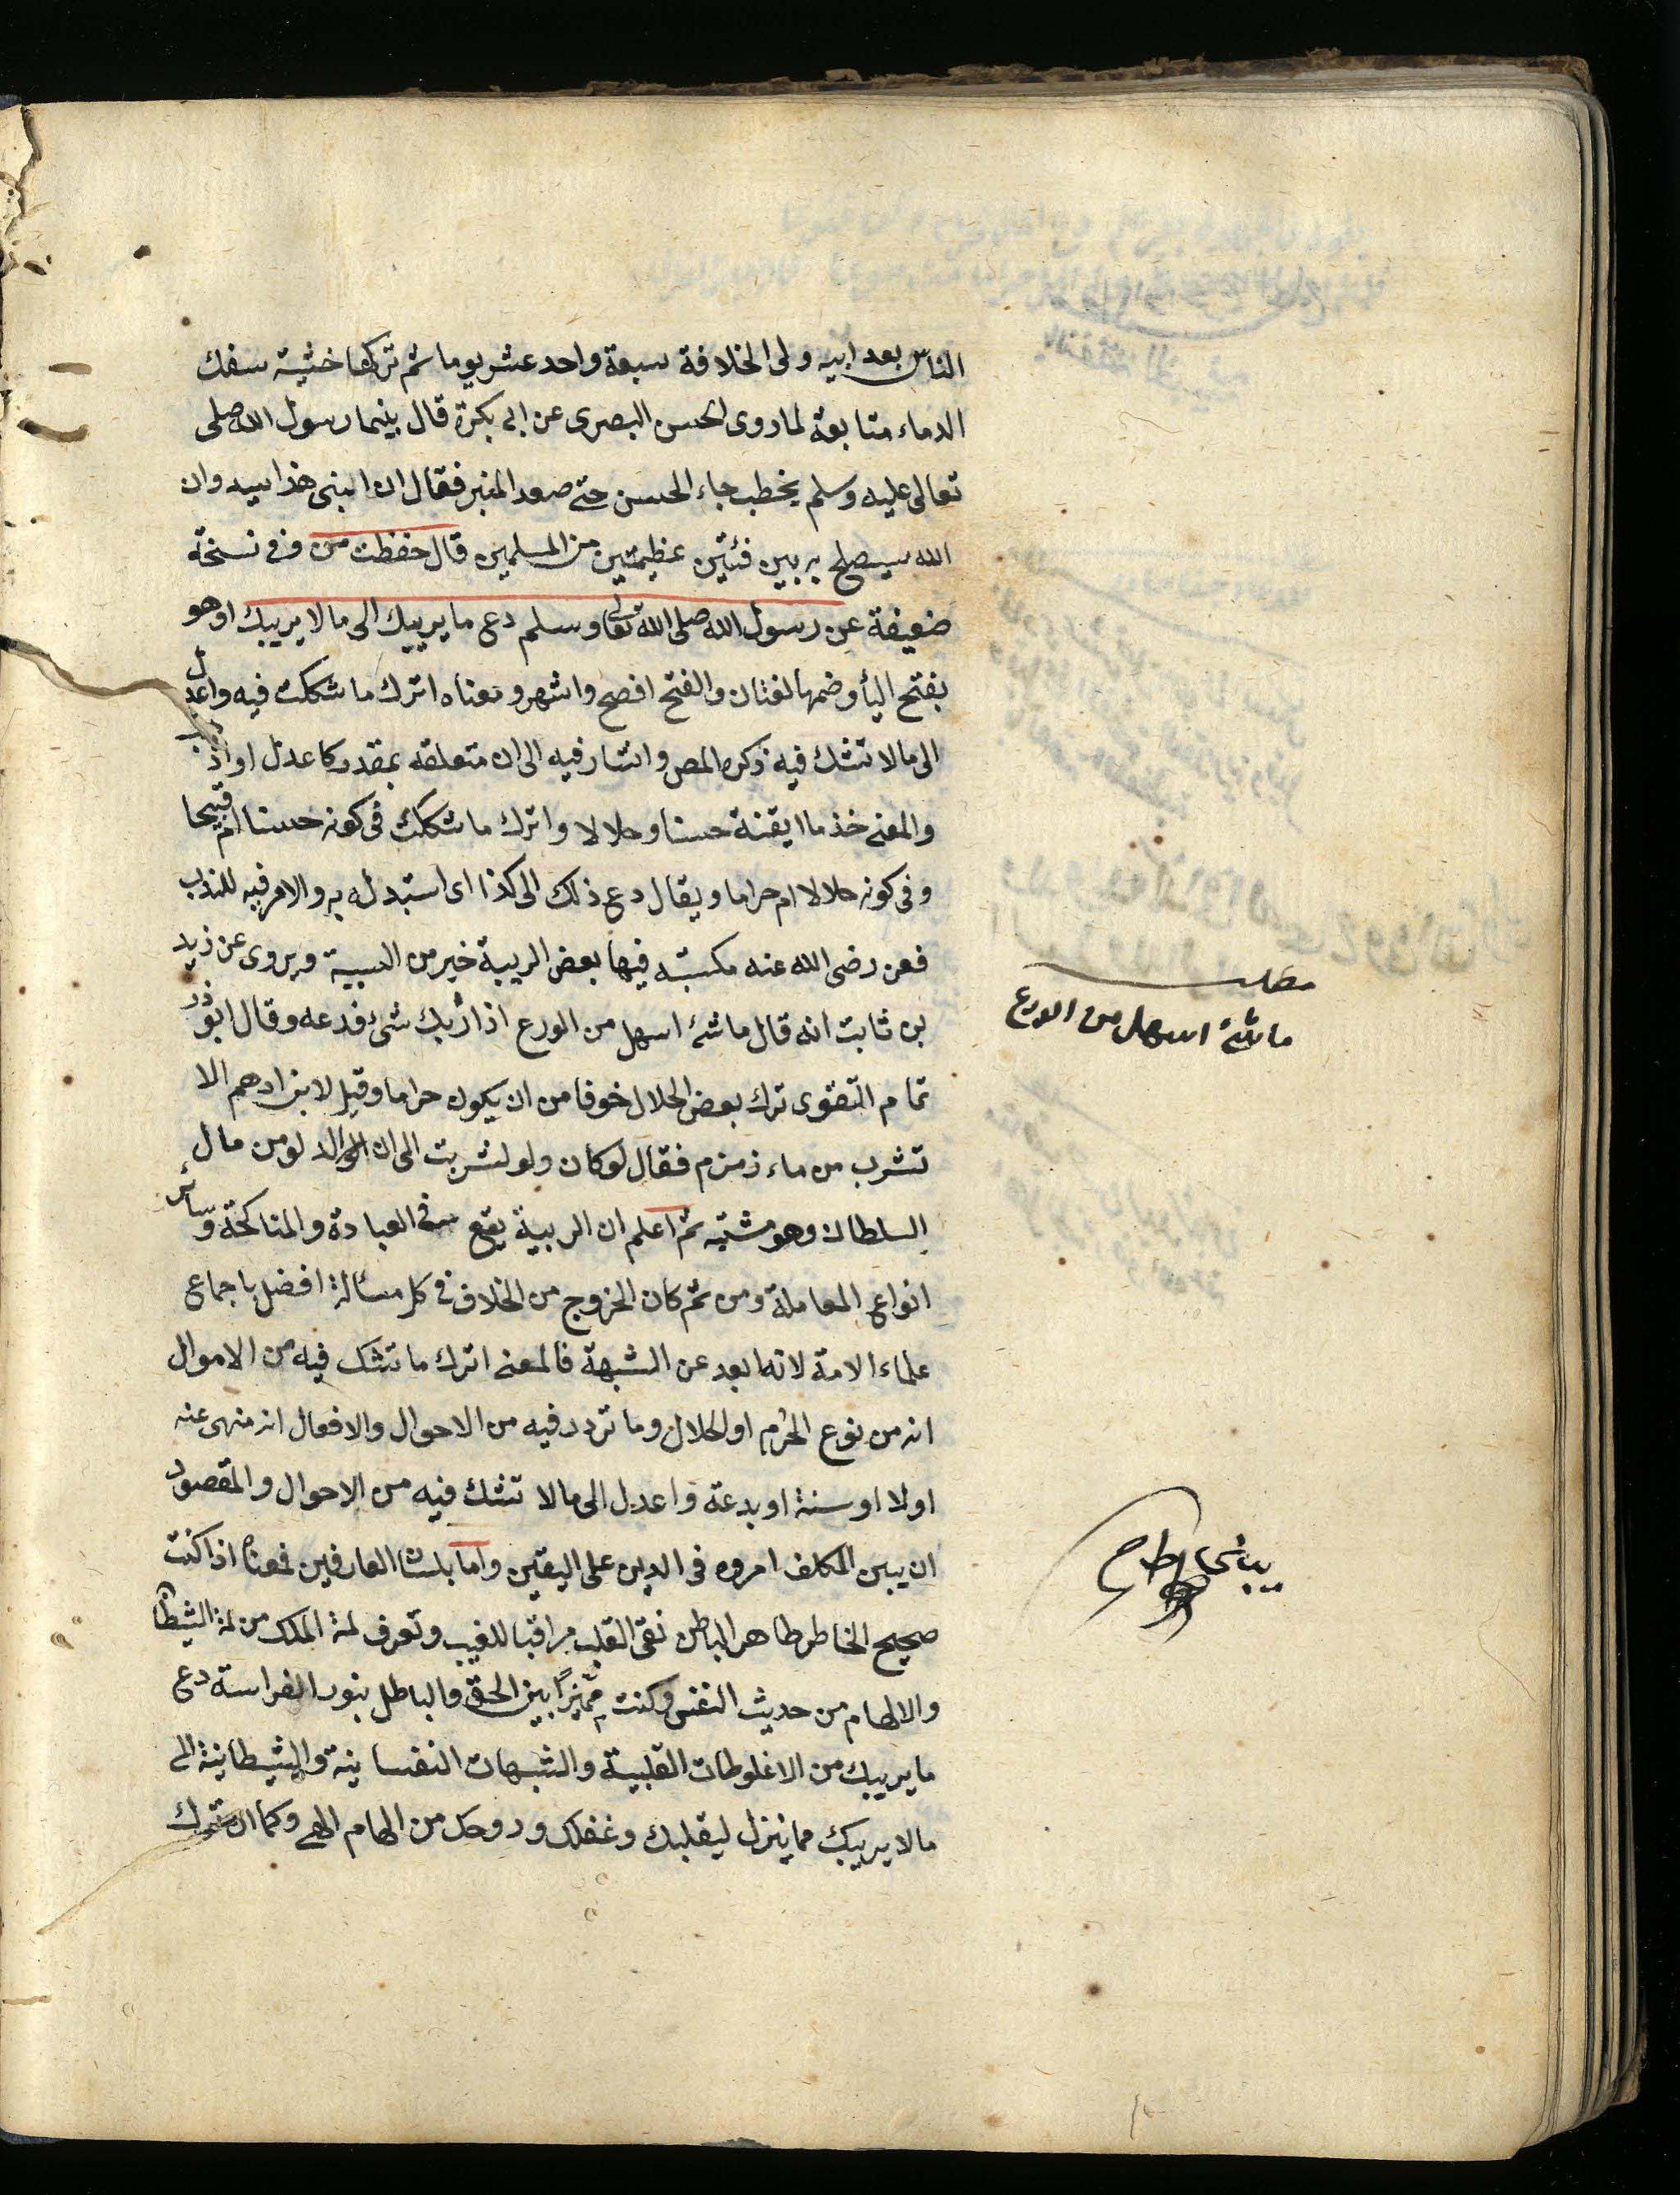 الناس بعد ابيه ولى الخلافة سبعة واحد عشر يوما ثم تركها خشية سفك
الدماء متابعة لما روى الحسن البصرى عن ابى بكرة قال بينما رسول الله صلى
تعالى عليه وسلم يخطب جاء الحسن حتى صعد المنبر فقال ان ابنى هذا سيد وان
الله سيصلح به بين فئتين عظيمتين من المسلمين قال حفظت من وفى نسخة
ضعيفة عن رسول الله صلى الله تعالى وسلم دع ما يريبك الى ما لا يريبك او هو
بفتح اليأ وضمها لغتان والفتح افصح واشهر ومعناه اترك ما شككت فيه واعدل
الى ما لا تشك فيه ذكره المص واشار فيه الى ان متعلقه بمقدر كاعدل او اذهب
والمعنى خذ ما ايقنة حسنا وحلالا واترك ما شككت فى كونه حسنا ام قبيحا
وفى كونه حلالا ام حراما ويقال دع ذلك الى كذا اى استبدله به والامر فيه للندب
فعن رضى الله عنه مكسبة فيها بعض الريبة خير من المسئلة ويروى عن زيد
بن ثابت انه قال ما شئ اسهل من الورع اذا رابك شئ فدعه وقال ابو ذر
تمام التقوى ترك بعض الحلال خوفا من ان يكون حراما وقيل لابن ادهم الا
تشرب من ماء زمزم فقال لو كان ولو لشربت الى ان الدلو من مال
السلطان وهو مشتبه ثم اعلم ان الريبية يقع فى العبادة والمناكحة وسائر
انواع المعاملة ومن ثم كان الخروج من الخلاف فى كل مسألة افضل باجماع
علماء الامة لانه ابعد عن الشبهة فالمعنى اترك ما تشك فيه من الاموال
انه من نوع الحرم او الحلال وما تردد فيه من الاحوال والافعال انه منهى عنه
او لا او سنة او بدعة واعدل الى ما لا تشك فيه من الاحوال والمقصود
ان يبين المكلف امروه فى الدين على اليقين واما بلسان العارفين فمعناه اذا كنت
صحيح الخاطر طاهر الباطن نقى القلب مراقبا للغيب وتعرف لمة الملك من لمة الشيطان
والالهام من حديث النفس وكنت مميزا بين الحق والباطل بنور الفراسة دع
ما يريبك من الاغلوطات القلبية والشبهات النفسانية والشيطانية الى
ما لا يريبك مما ينزل ليقلبك وعقلك وروحك من الهام الهى وكما ان تترك
مطلب
ما شئ اسهل من الورع